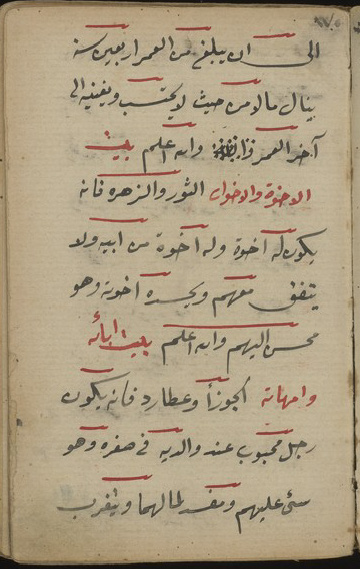 الى ان يبلغ من العمر اربعين سنة
ينال مالا من حيث لا يحتسب ويغنيه الى
آخر العمر والله اعلم بيت
الاخوة والاخوات الثور والزهره فانه
يكون له اخوة وله اخوة من ابيه ولا
يتفق معهم ويحسده اخوته وهو
محسن اليهم والله اعلم بيت ابائه
وامهاته الجوزا وعطارد فانه يكون
رجل محبوب عند والديه في صغره وهو
سئ عليهم ومفسد لمالهما ويتغرب